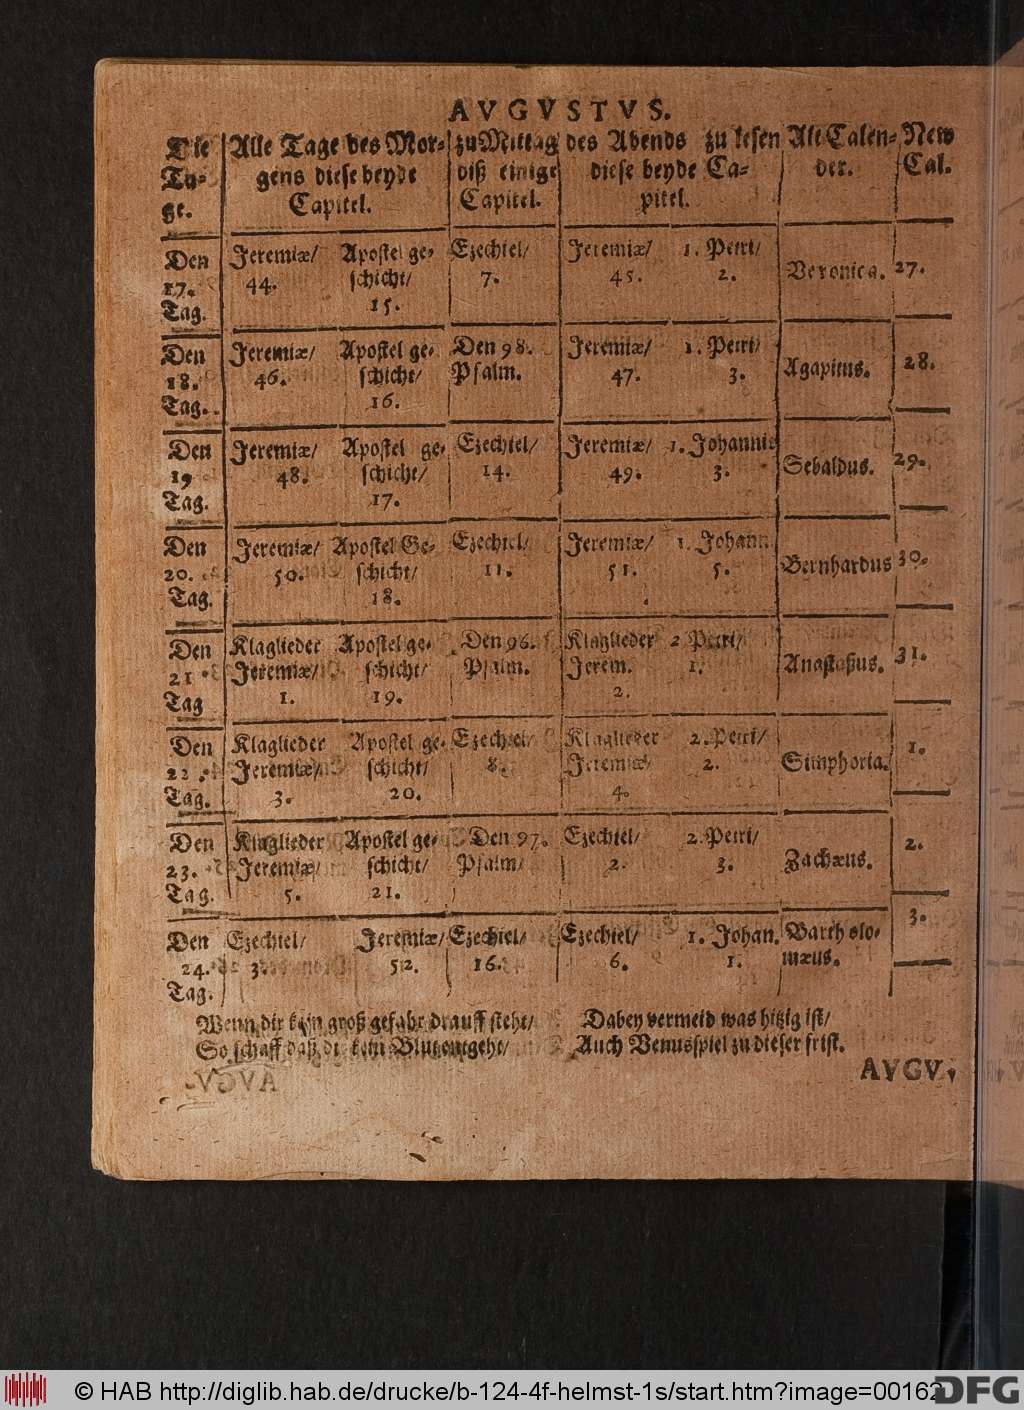 AVGVSTVS.
Die Tage. Alle Tage des Morgens diese beyde Capitel. zu Mittag diß einige Capitel. des Abends zu lesen diese beyde Capitel. Alt Calender. New Cal.
Den 17. Tag. Jeremiæ/ 44. Apostel geschicht/ 15. Ezechiel/ 7. Jeremiæ/ 45. 1. Petri/ 2. Veronica. 27.
Den 18. Tag. Jeremiæ/ 46. Apostel geschicht/ 16. Den 98. Psalm. Jeremiæ/ 47. 1. Petri/ 3. Agapitus. 28.
Den 19 Tag. Jeremiæ/ 48. Apostel geschicht/ 17. Ezechiel/ 14. Jeremiæ/ 49. 1. Johannis 3. Sebaldus. 29.
Den 20. Tag. Jeremiæ/ 50. Apostel Geschicht/ 18. Ezechiel/ 11. Jeremiæ/ 51. 1. Johann. 5. Bernhardus 30.
Den 21. Tag Klaglieder Jeremiæ/ 1. Apostel geschicht/ 19. Den 96. Psalm. Klaglieder Jerem. 2. 2. Petri/ 1. Anastasius. 31.
Den 22. Tag. Klaglieder Jeremiæ/ 3. Apostel geschicht/ 20. Ezechiel/ 8. Klaglieder Jeremiæ/ 4. 2. Petri/ 2. Simphoria. 1.
Den 23. Tag. Klaglieder Jeremiæ/ 5. Apostel geschicht/ 21. Den 97. Psalm/ Ezechiel/ 2. 2. Petri/ 3. Zachæus. 2.
Den 24. Tag. Ezechiel/ 3. Jeremiæ/ 52. Ezechiel/ 16. Ezechiel/ 6. 1. Johan. 1. Bartholomæus. 3.
Wenn dir kein groß gefahr drauff steht/
So schaff daß dir kein Blut entgeht/
Dabey vermeid was hitzig ist/
Auch Venusspiel zu dieser frist.
AVGV.
© HAB http://diglib.hab.de/drucke/b-124-4f-helmst-1s/start.htm?image=00162
DFG